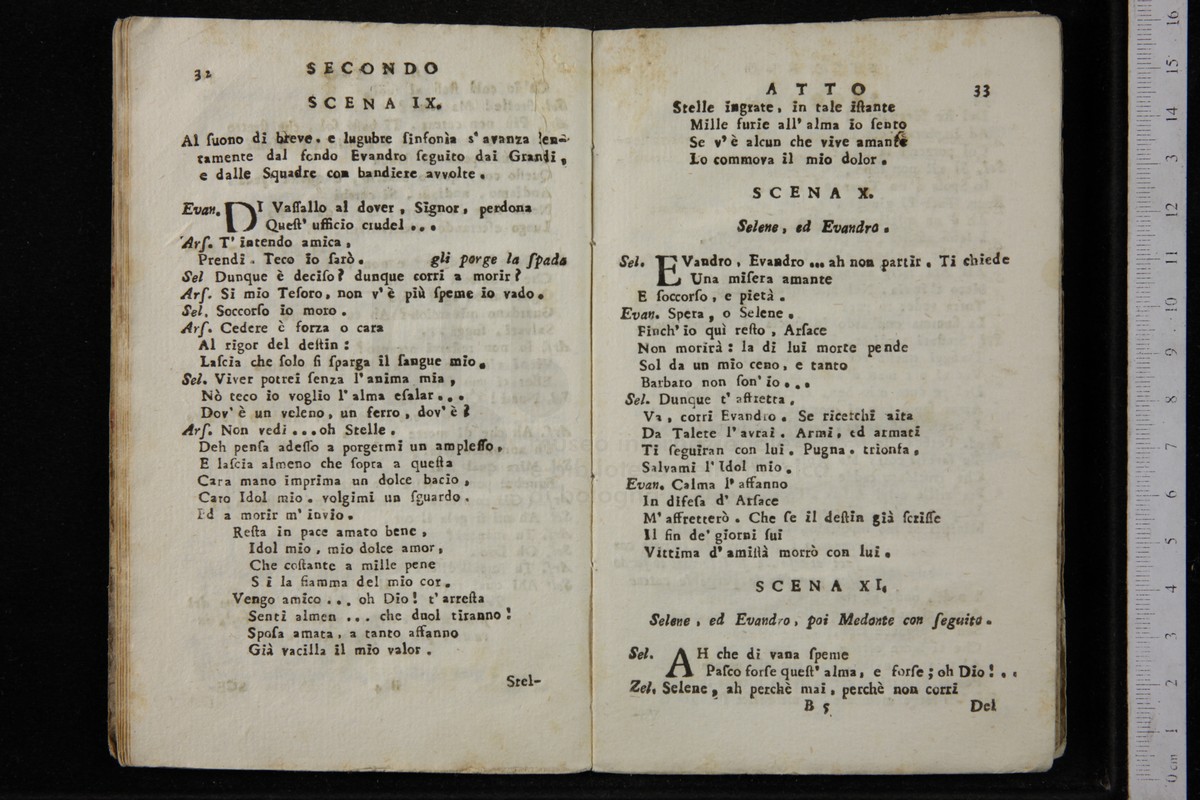 32 SECONDO
SCENA IX.
Al ſuono di breve, e lugubre ſinfonìa s' avanza len-
tamente dal fondo Evandro ſeguito dai Grandi,
e dalle Squadre con bandiere avvolte.
Evan. DI Vaſſallo al dover, Signor, perdona
Queſt' ufficio crudel...
Arſ. T' intendo amica,
Prendi. Teco io ſarò. gli porge la ſpada
Sel Dunque è deciſo? dunque corri a morir?
Arſ. Si mio Teſoro, non v' è più ſpeme io vado.
Sel. Soccorſo io moro.
Arſ. Cedere è forza o cara
Al rigor del deſtin:
Laſcia che ſolo ſi ſparga il ſangue mio.
Sel. Viver potrei ſenza l' anima mia,
Nò teco io voglio l' alma eſalar...
Dov' è un veleno, un ferro, dov' è?
Arſ. Non vedi...oh Stelle.
Deh penſa adeſſo a porgermi un ampleſſo,
E laſcia almeno che ſopra a queſta
Cara mano imprima un dolce bacio,
Caro Idol mio. volgimi un ſguardo.
Ed a morir m' invio.
Reſta in pace amato bene,
Idol mio, mio dolce amor,
Che coſtante a mille pene
Si la fiamma del mio cor.
Vengo amico... oh Dio! t' arreſta
Senti almen ... che duol tiranno!
Spoſa amata, a tanto affanno
Già vacilla il mio valor.
Stel-
ATTO 33
Stelle ingrate, in tale iſtante
Mille furie all' alma io ſento
Se v' è alcun che vive amante
Lo commova il mio dolor.
SCENA X.
Selene, ed Evandro.
Sel. EVandro, Evandro ... ah non partir. Ti chiede
Una miſera amante
E ſoccorſo, e pietà.
Evan. Spera, o Selene.
Finch' io quì reſto, Arſace
Non morirà: la di lui morte pende
Sol da un mio ceno, e tanto
Barbaro non ſon' io...
Sel. Dunque t' affretta,
Va, corri Evandro. Se ricerchi aita
Da Talete l' avrai. Armi, ed armati
Ti ſeguiran con lui. Pugna. trionfa,
Salvami l' Idol mio.
Evan. Calma l' affanno
In difeſa d' Arſace
M' affretterò. Che ſe il deſtin già ſcriſſe
Il fin de' giorni ſui
Vittima d' amiſtà morrò con lui.
SCENA XI.
Selene, ed Evandro, poi Medonte con ſeguito.
Sel. AH che di vana ſpeme
Paſco forſe queſt' alma, e forſe; oh Dio!..
Zel. Selene, ah perchè mai, perchè non corri
B 5 Del